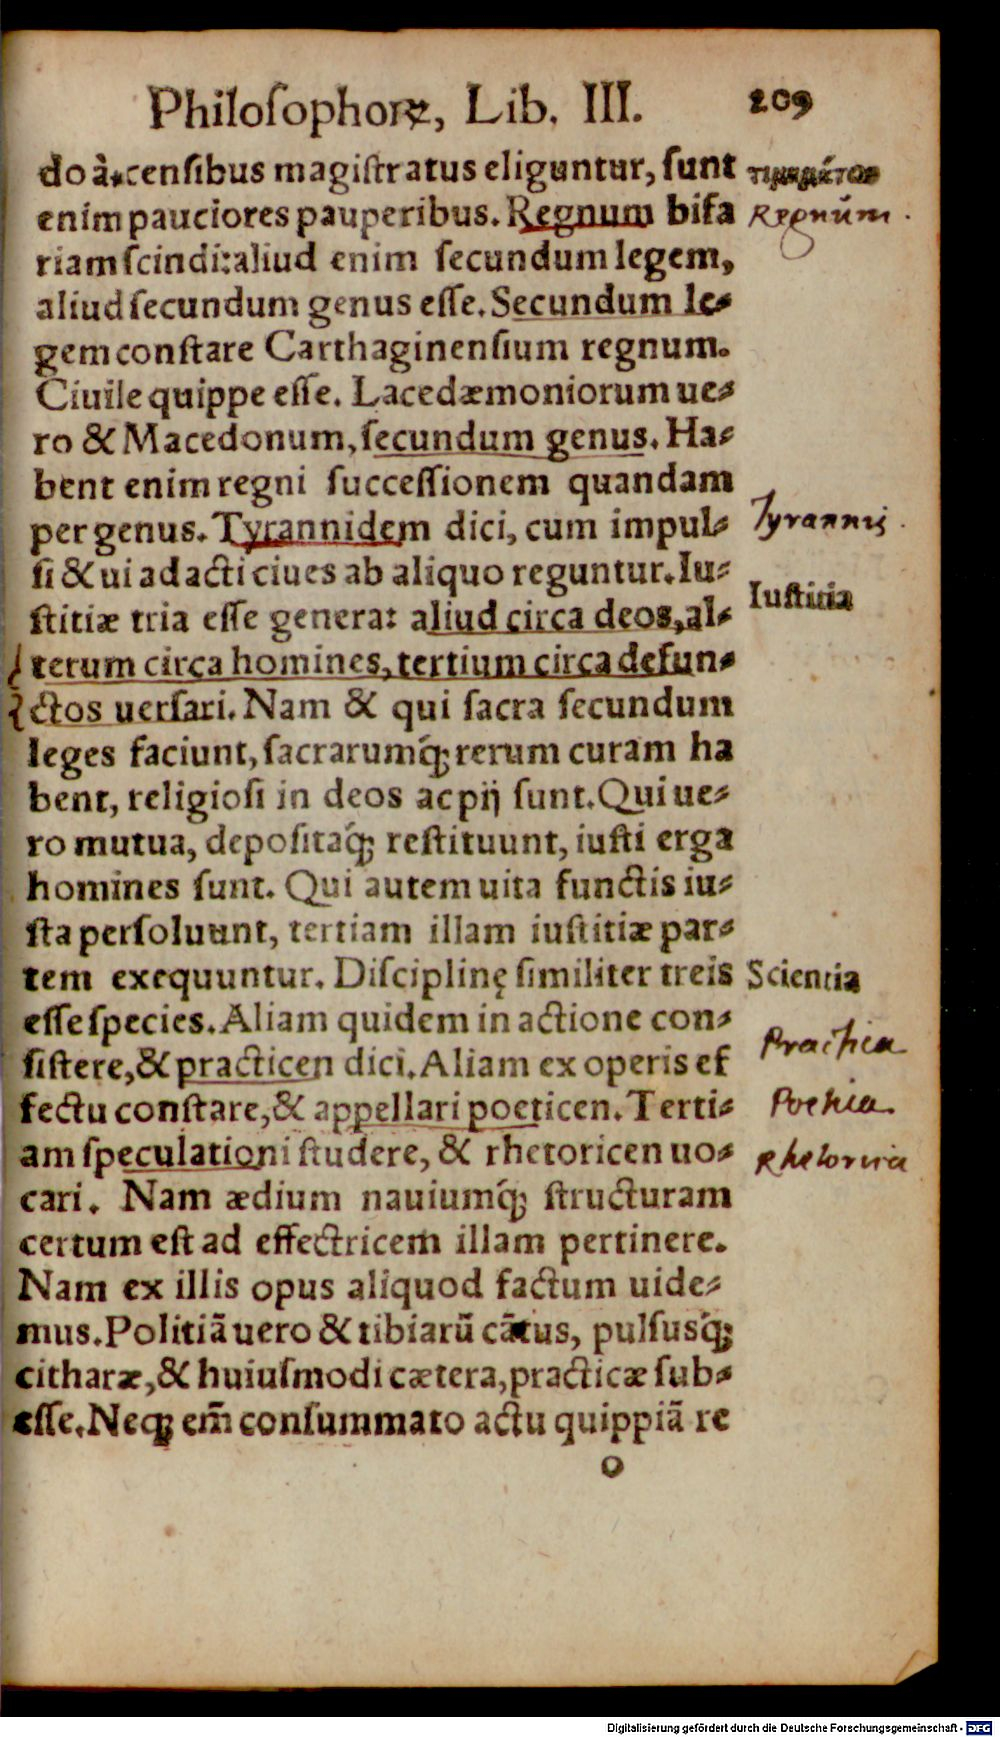 Philosophorꝝ, Lib. III. 209
do à censibus magistratus eliguntur, sunt
enim pauciores pauperibus. Regnum bifa
Regnum.
riam scindi: aliud enim secundum legem,
aliud secundum genus esse. Secundum le-
gem constare Carthaginensium regnum.
Ciuile quippe esse. Lacedæmoniorum ue-
ro & Macedonum, secundum genus. Ha-
bent enim regni successionem quandam
per genus. Tyrannidem dici, cum impul-
Tyrannis.
si & ui adacti ciues ab aliquo reguntur. Iu-
Iusticia
stitiæ tria esse genera: aliud circa deos, al-
terum circa homines, tertium circa defun-
ctos uersari. Nam & qui sacra secundum
leges faciunt, sacrarumq́; rerum curam ha
bent, religiosi in deos ac pij sunt. Qui ue-
ro mutua, depositaq́; restituunt, iusti erga
homines sunt. Qui autem uita functis iu-
sta persoluunt, tertiam illam iustitiæ par-
tem exequuntur. Disciplinę similiter treis
Scientia
esse species. Aliam quidem in actione con-
sistere, & practicen dici. Aliam ex operis ef
Practica
fectu constare, & appellari poeticen. Terti-
Poetica.
am speculationi studere, & rhetoricen uo-
Rhetorica
cari. Nam ædium nauiumq́; structuram
certum est ad effectricem illam pertinere.
Nam ex illis opus aliquod factum uide-
mus. Politiā uero & tibiarū cātus, pulsusq́;
citharæ, & huiusmodi cætera, practicæ sub-
esse. Neq; em̃ consummato actu quippiā re
o
Digitalisierung gefördert durch die Deutsche Forschungsgemeinschaft - DFG